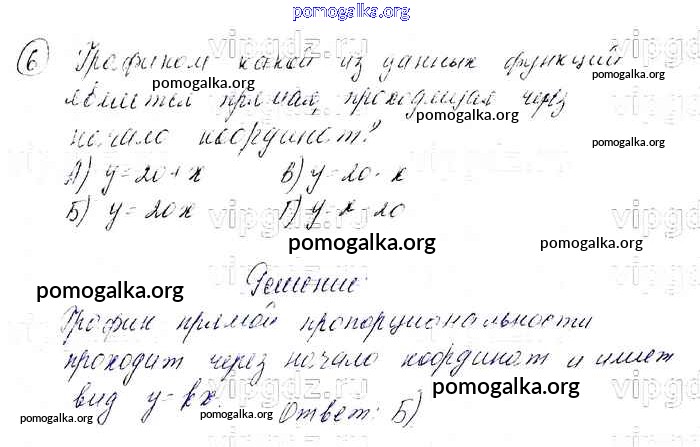 pomogalka.org
6 Графиком какой из данных функций
является прямая, проходящая через
начало координат?
А) y=20+x В) y=20-x
Б) y=20x Г) y=x-20
pomogalka.org
pomogalka.org
pomogalka.org
pomogalka.org
pomogalka.org
pomogalka.org
Решение:
pomogalka.org
График прямой пропорциональности
проходит через начало координат и имеет
вид y=kx. Ответ: Б)
pomogalka.org
pomogalka.org
pomogalka.org
vipgdz.ru